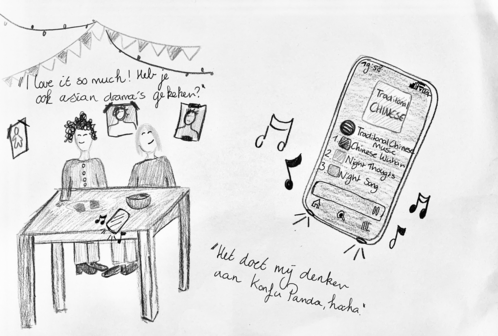 "I love it so much! Heb je
ook asian drama's gekeken?"
19:58
Traditional
CHINESE
Traditional Chinese
Music
1 Chinese
2 Night Thougts
3 Night Song
"Het doet mij denken
aan Konfu Panda, haha."